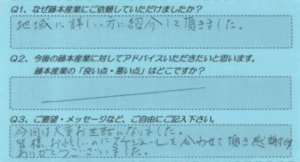 Q1、なぜ藤本産業にご依頼していただけましたか？
地域に詳しい方に紹介して頂きました。
Q2、今後の藤本産業に対してアドバイスいただきたいと思います。
藤本産業の「良い点・悪い点」はどこですか？
Q3、ご要望・メッセージなど、ご自由にご記入下さい。
今回は大変お世話になりました。
皆様お忙しいのにスケジュールを合わせて頂き感謝です
ありがとうございました。